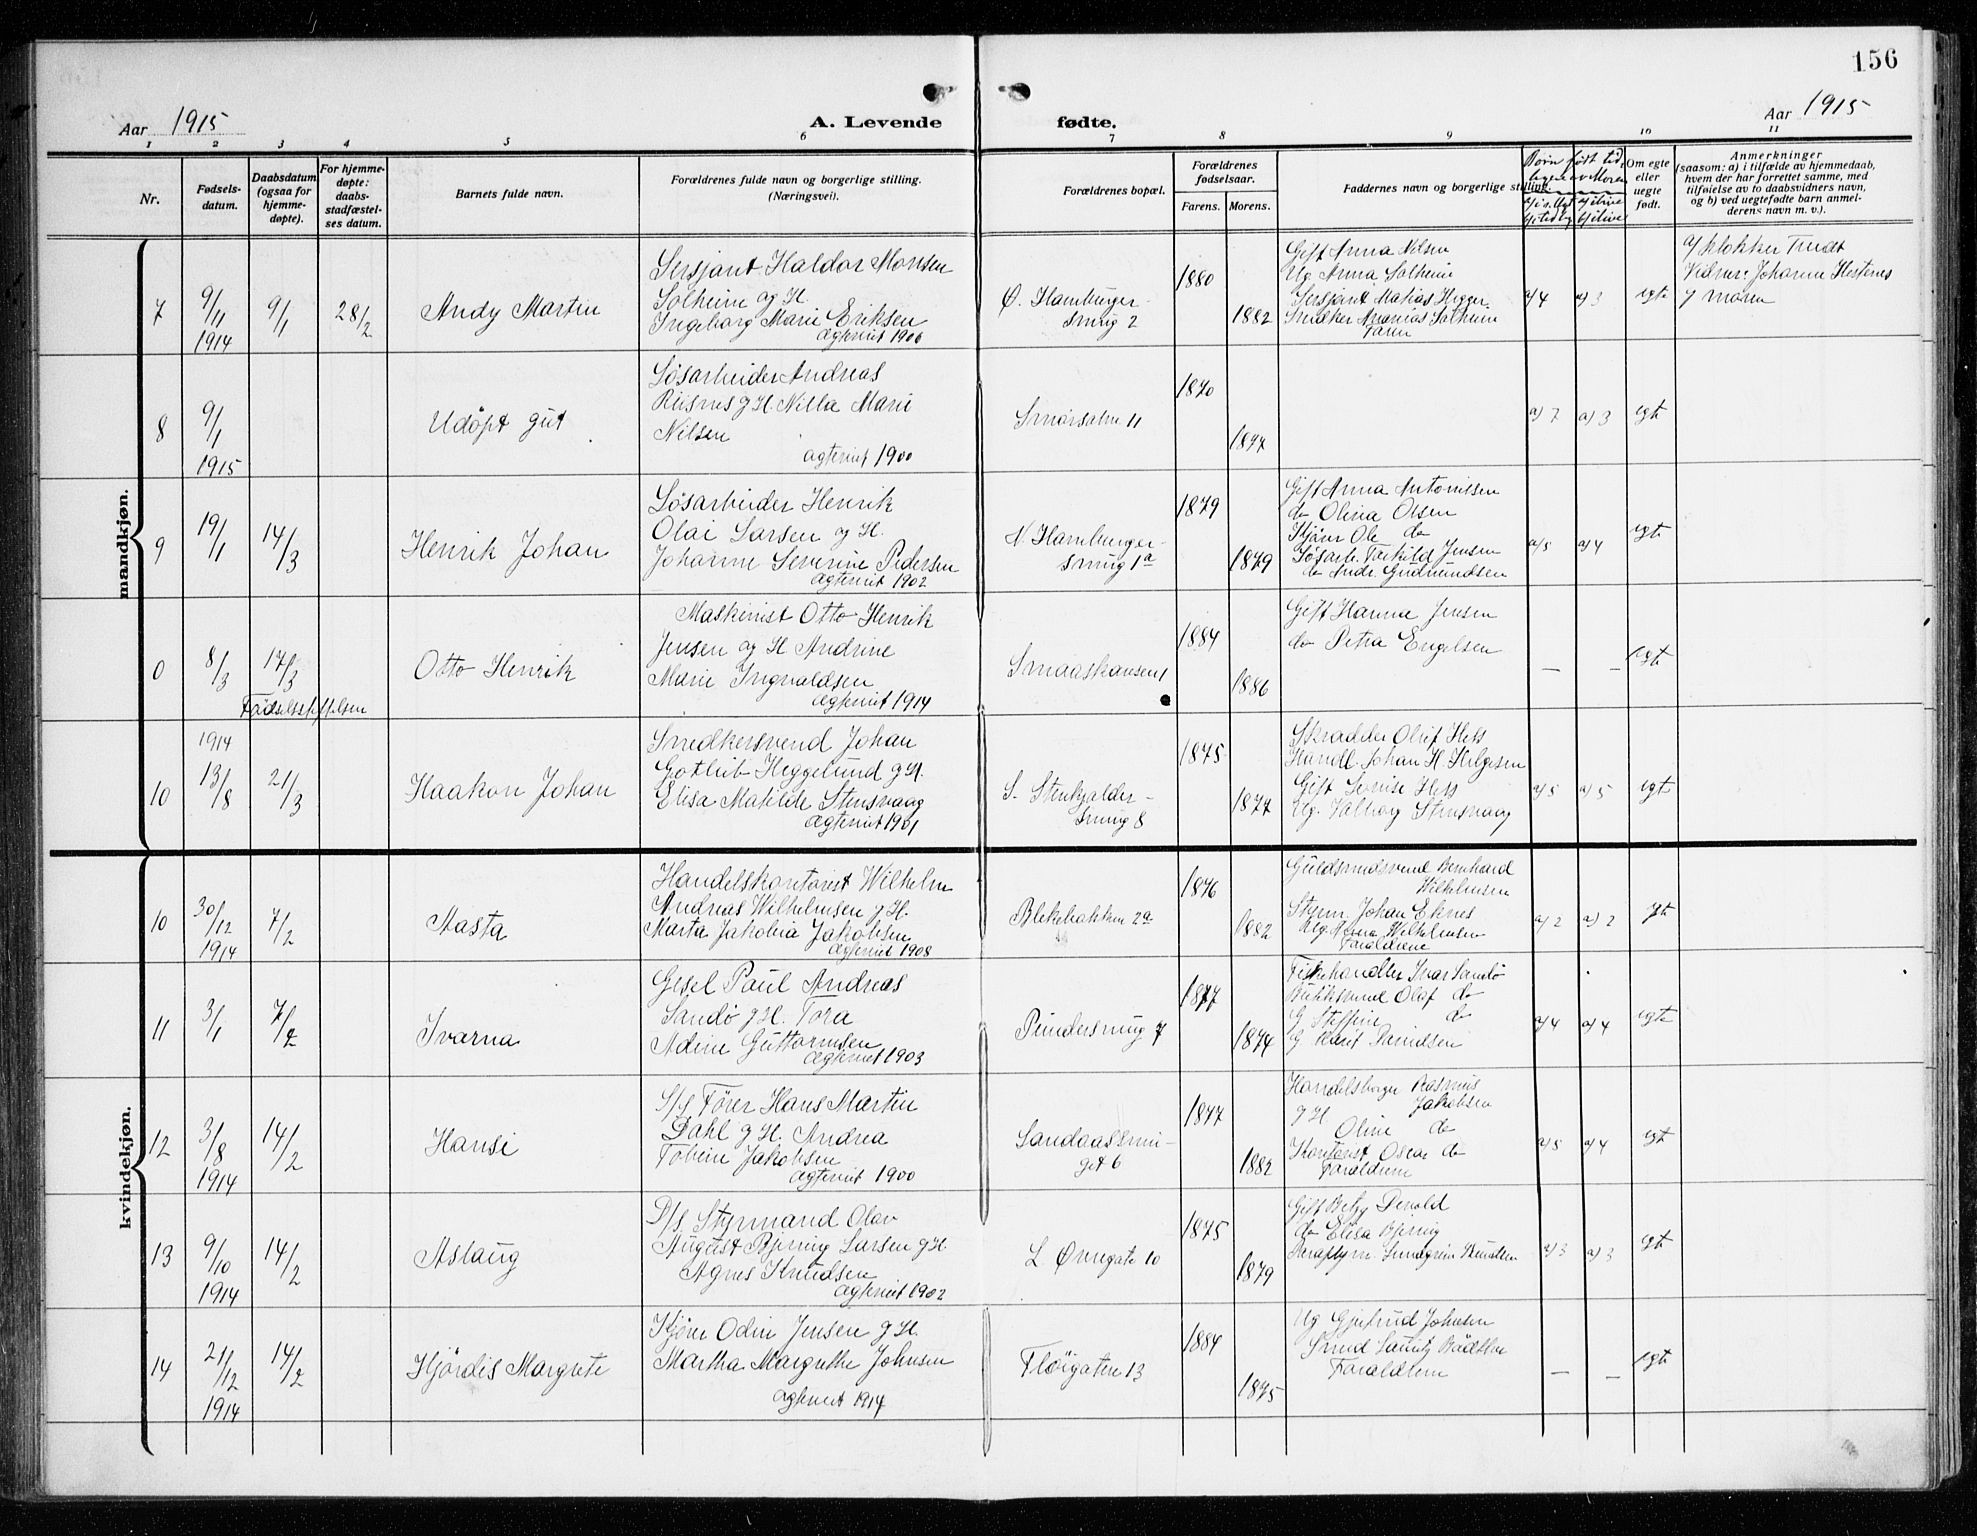 156
Aar 1915
A. Levende fødte.
Aar 1915
1 2 3 4 5 6 7 8 9 10 11
Nr.
Fødsels-
datum.
Daabsdatum
(ogsaa for
hjemme-
døpte).
For hjemme-
døpte:
daabs-
stadfæstel-
ses datum.
Barnets fulde navn.
Forældrenes fulde navn og borgerlige stilling.
(Næringsvei).
Forældrenes bopæl.
Forældrenes
fødselsaar.
Farens. Morens.
Faddernes navn og borgerlige stilling.
Børn født tid-
ligere av Moren
Om egte
eller
uegte
født.
Anmerkninger
(saasom: a) i tilfælde av hjemmedaab,
hvem der har forrettet samme, med
tilføielse av to daabsvidners navn,
og b) ved uegtefødte barn anmel-
derens navn m. v.).
mandkjøn.
7
9/11
1914
9/1
28/2
Andy Martin
Sersjant Haldor Monsen
Solheim og H.
Ingeborg Marie Eriksen
Egteviet 1906
Ø. Hamburger-
smug 2
1880
1882
Gift Anna Nilsen
Ug Anna Solheim
Sersjant Matias Hegger
Snedker Ananias Solheim
Faren
a/4 a/3 egte
a/ Klokker
Vidner: Johanne Hestenes
g moren
8
9/1
1915
Udøpt gut
Løsarbeider Andreas
Riisnes g H. Nilla Marie
Nilsen
Egteviet 1900
Smørsalm 11
1870
1877
a/7 a/3 egte
9
19/1
14/3
Henrik Johan
Løsarbeider Henrik
Olai Larsen og H.
Johanne Severine Pedersen
Egteviet 1902
N. Hamburger-
smug 1a
1879
1879
Gift Anna Antonisen
do Olina Olsen
Kjører Ole do
Løsarb. Torkild Jensen
do Andr. Gudmundsen
a/5 a/4 egte
0
8/3
17/3
Fødselsstiftelsen
Otto Henrik
Maskinist Otto Henrik
Jensen og H Andrine
Marie Ingvaldsen
Egteviet 1914
Smaaskansen 1
1884
1886
Gift Hanna Jensen
do Petra Engelsen
— — egte
10
1914
13/8
21/3
Haakon Johan
Snedkersvend Johan
Gotlieb Heggelund g H.
Elisa Matilde Stensvaag
Egteviet 1901
S. Stenkjelder-
smug 8
1875
1877
Skrædder Oluf Hess
Handl. Johan H. Helgesen
Gift Lovise Hess
Ug. Valborg Stensvaag
a/5 a/5 egte
kvindekjøn.
10
30/12
1914
7/2
Aasta
Handelskontorist Wilhelm
Andreas Wilhelmsen g H.
Marta Jakobia Jakobsen
Egteviet 1908
Blekebakken 2a
1876
1882
Guldsmedsvend Bernhard
Wilhelmsen
Styrm. Johan Eknes
Ug. Anna Wilhelmsen
Forældrene
a/2 a/2 egte
11
3/1
7/2
Ivarna
Gesel Paul Andreas
Sandø g H. Tora
Adine Guttormsen
Egteviet 1903
Pundersmug 7
1877
1874
Fiskehandler Ivar Sandø
Butiksvend Olaf do
G Steffine do
G Marit Danielsen
a/4 a/4 egte
12
3/8
1914
14/2
Hansi
S/S Fører Hans Martin
Dahl g H. Andrea
Tobine Jakobsen
Egteviet 1900
Sandaassmu-
get 6
1877
1882
Handelsborger Rasmus
Jakobsen
g H
Oline do
Kontorist Oscar do
Forældrene
a/5 a/4 egte
13
9/10
1914
14/2
Aslaug
D/S Styrmand Olav
August Bjering Larsen g H
Agnes Knudsen
Egteviet 1902
L. Øvregate 10
1875
1879
Gift Betzy Devold
do Elisa Bjering
a/3 a/3 egte
14
21/12
1914
14/2
Hjørdis Margrete
Kjører Odin Jensen g H.
Martha Margrethe Johnsen
Egteviet 1914
Fløigaten 13
1884
1875
Ug Gjertrud Johnsen
Smed Lauritz Bødtker
Forældrene
— — egte